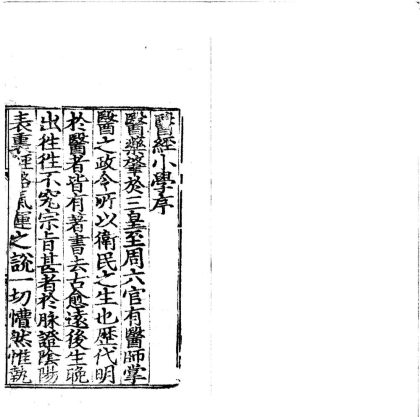 醫經小學序
醫藥肇於三皇至周六官有醫師掌
醫之政令所以衛民之生也歷代明
於醫者皆有著書去古愈遠後生晚
出徃徃不究宗旨甚者於脉證陰陽
表裏經絡氣運之說一切懵然惟執